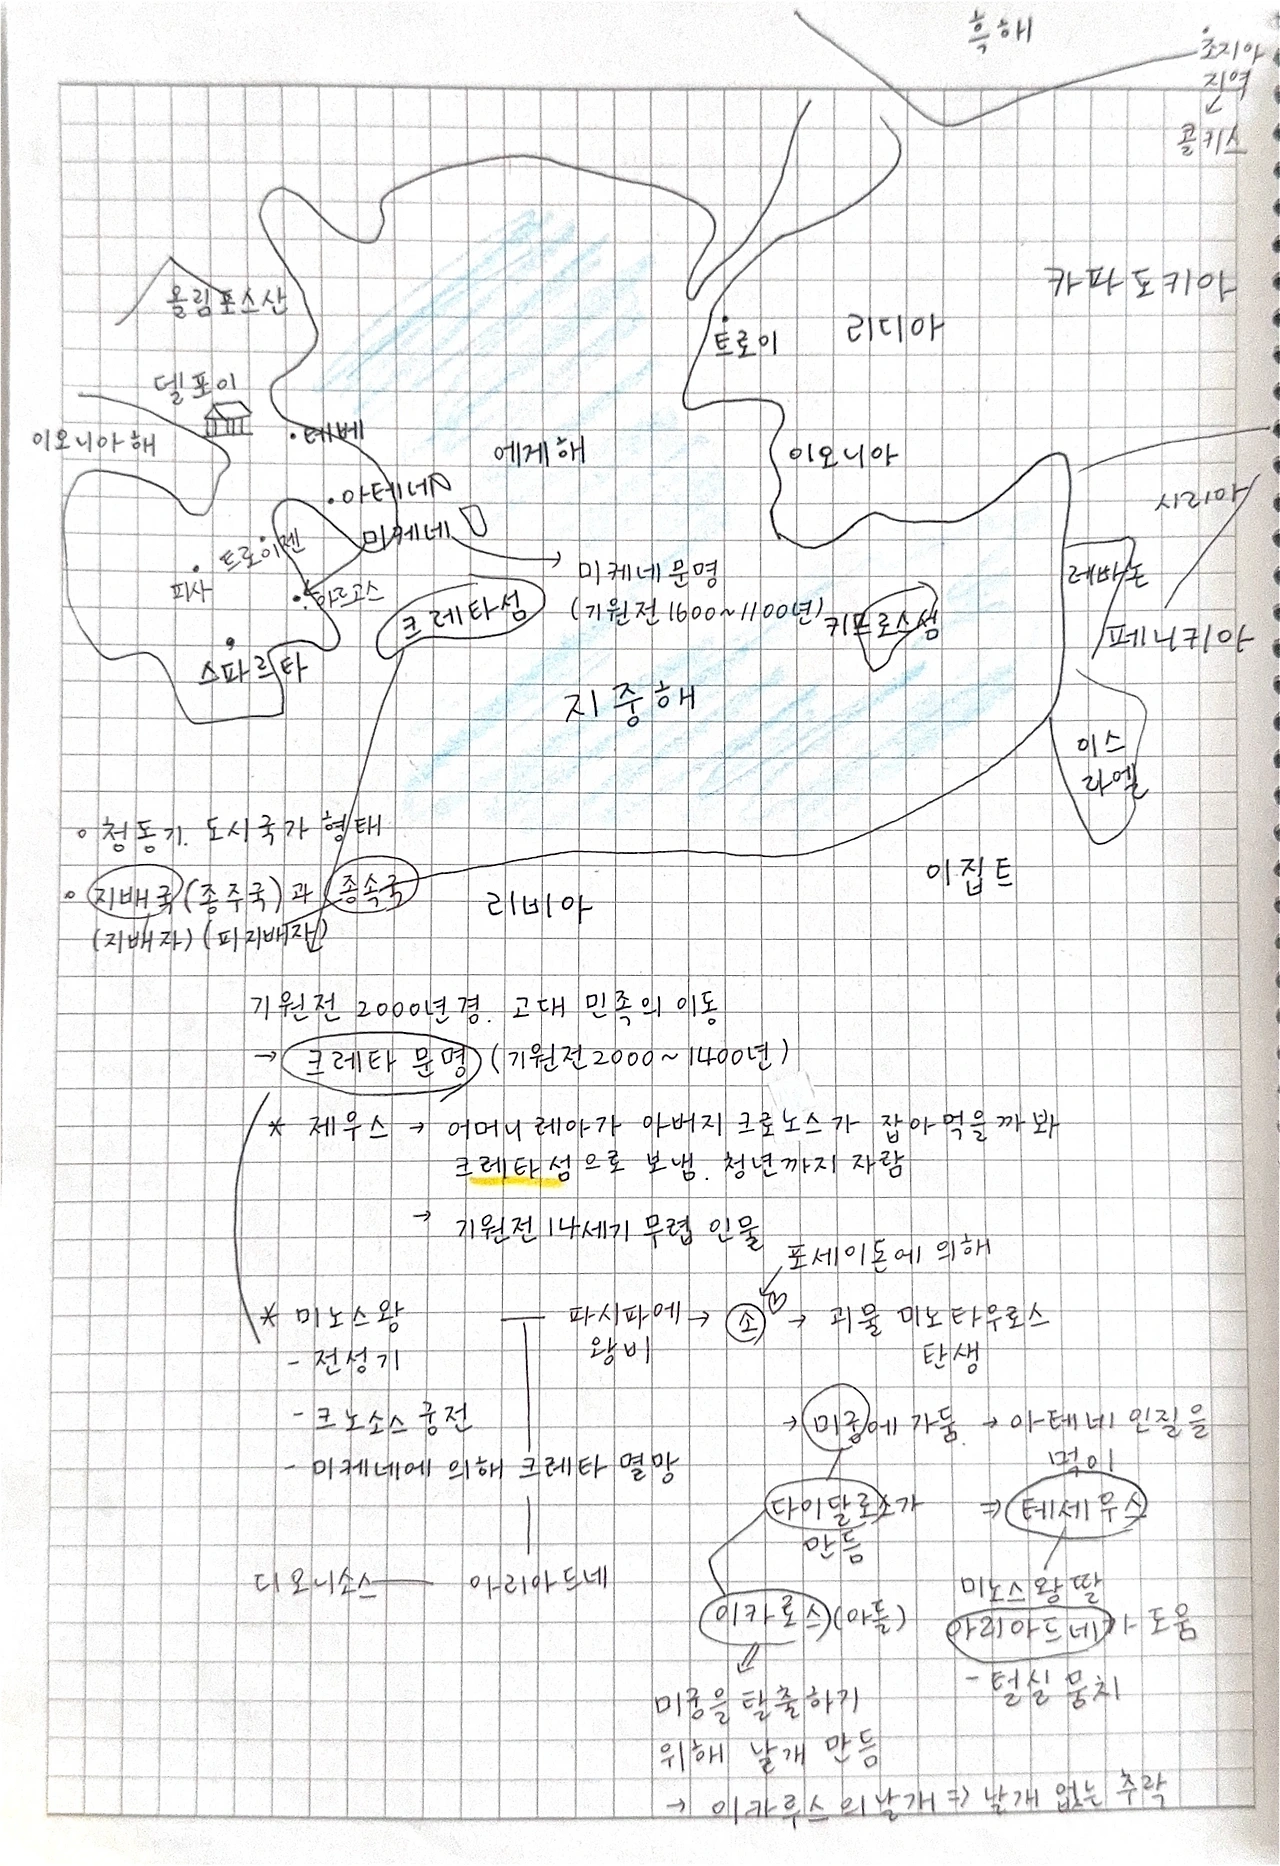 흑해
조지아
지역
콜키스
올림포스산
카파도키아
트로이
리디아
델포이
이오니아해
테베
에게해
이오니아
아테네
시리아
미케네
트로이젠
피사
아르고스
크레타섬
미케네 문명
(기원전 1600~1100년)
키프로스섬
레바논
페니키아
스파르타
지중해
이스
라엘
청동기. 도시국가 형태
이집트
지배국(종주국)과 종속국
(지배자) (피지배자)
리비아
기원전 2000년경. 고대 민족의 이동
→ 크레타 문명 (기원전 2000~1400년)
* 제우스 → 어머니 레아가 아버지 크로노스가 잡아먹을까봐
크레타섬으로 보냄. 청년까지 자람
→ 기원전 14세기 무렵 인물
포세이돈에 의해
* 미노스왕 파시파에 → 소 → 괴물 미노타우로스
왕비 탄생
- 전성기
- 크노소스 궁전
→ 미궁에 가둠 → 아테네 인질을
먹이
- 미케네에 의해 크레타 멸망
다이달로스가
만듬
⇒ 테세우스
디오니소스 아리아드네
미노스왕 딸
아리아드네가 도움
- 털실 뭉치
이카로스 (아들)
미궁을 탈출하기
위해 날개 만듬
→ 이카루스의 날개 ⇒ 날개 없는 추락